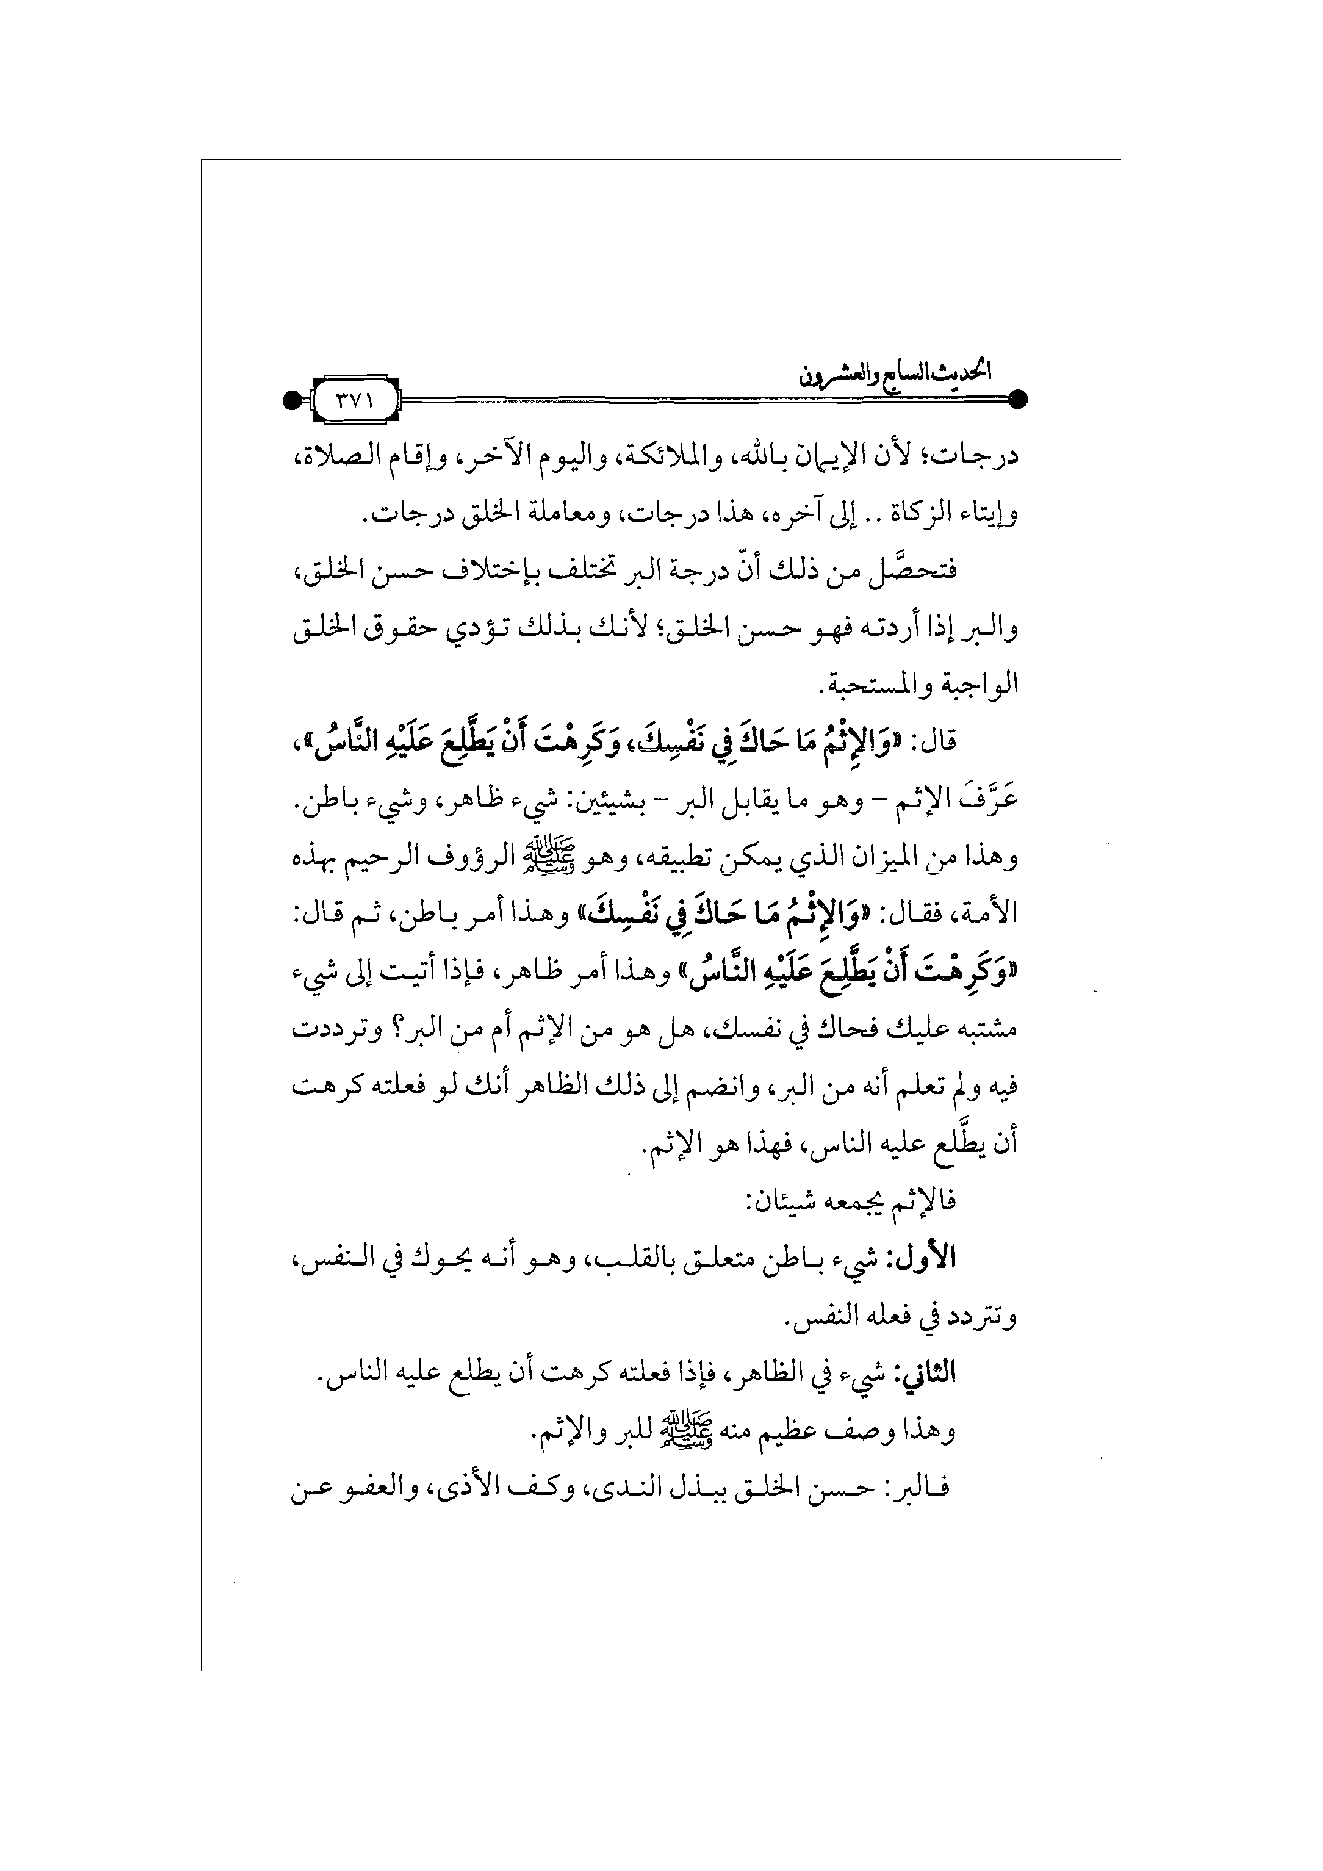 الحديث السابع والعشرون
٣٧١
درجات؛ لأن الإيمان بالله، والملائكة، واليوم الآخر، وإقام الصلاة،
وإيتاء الزكاة .. إلى آخره، هذا درجات، ومعاملة الخلق درجات.
فتحصَّل من ذلك أنّ درجة البر تختلف بإختلاف حسن الخلق،
والبر إذا أردته فهو حسن الخلق؛ لأنك بذلك تؤدي حقوق الخلق
الواجبة والمستحبة.
قال: «وَالإِثْمُ مَا حَاكَ فِي نَفْسِكَ، وَكَرِهْتَ أَنْ يَطَّلِعَ عَلَيْهِ النَّاسُ»،
عَرَّفَ الإثم - وهو ما يقابل البر - بشيئين: شيء ظاهر، وشيء باطن.
وهذا من الميزان الذي يمكن تطبيقه، وهو ﷺ الرؤوف الرحيم بهذه
الأمة، فقال: «وَالإِثْمُ مَا حَاكَ فِي نَفْسِكَ» وهذا أمر باطن، ثم قال:
«وَكَرِهْتَ أَنْ يَطَّلِعَ عَلَيْهِ النَّاسُ» وهذا أمر ظاهر، فإذا أتيت إلى شيء
مشتبه عليك فحاك في نفسك، هل هو من الإثم أم من البر؟ وترددت
فيه ولم تعلم أنه من البر، وانضم إلى ذلك الظاهر أنك لو فعلته كرهت
أن يطَّلع عليه الناس، فهذا هو الإثم.
فالإثم يجمعه شيئان:
الأول: شيء باطن متعلق بالقلب، وهو أنه يحوك في النفس،
وتتردد في فعله النفس.
الثاني: شيء في الظاهر، فإذا فعلته كرهت أن يطلع عليه الناس.
وهذا وصف عظيم منه ﷺ للبر والإثم.
فالبر: حسن الخلق ببذل الندى، وكف الأذى، والعفو عن